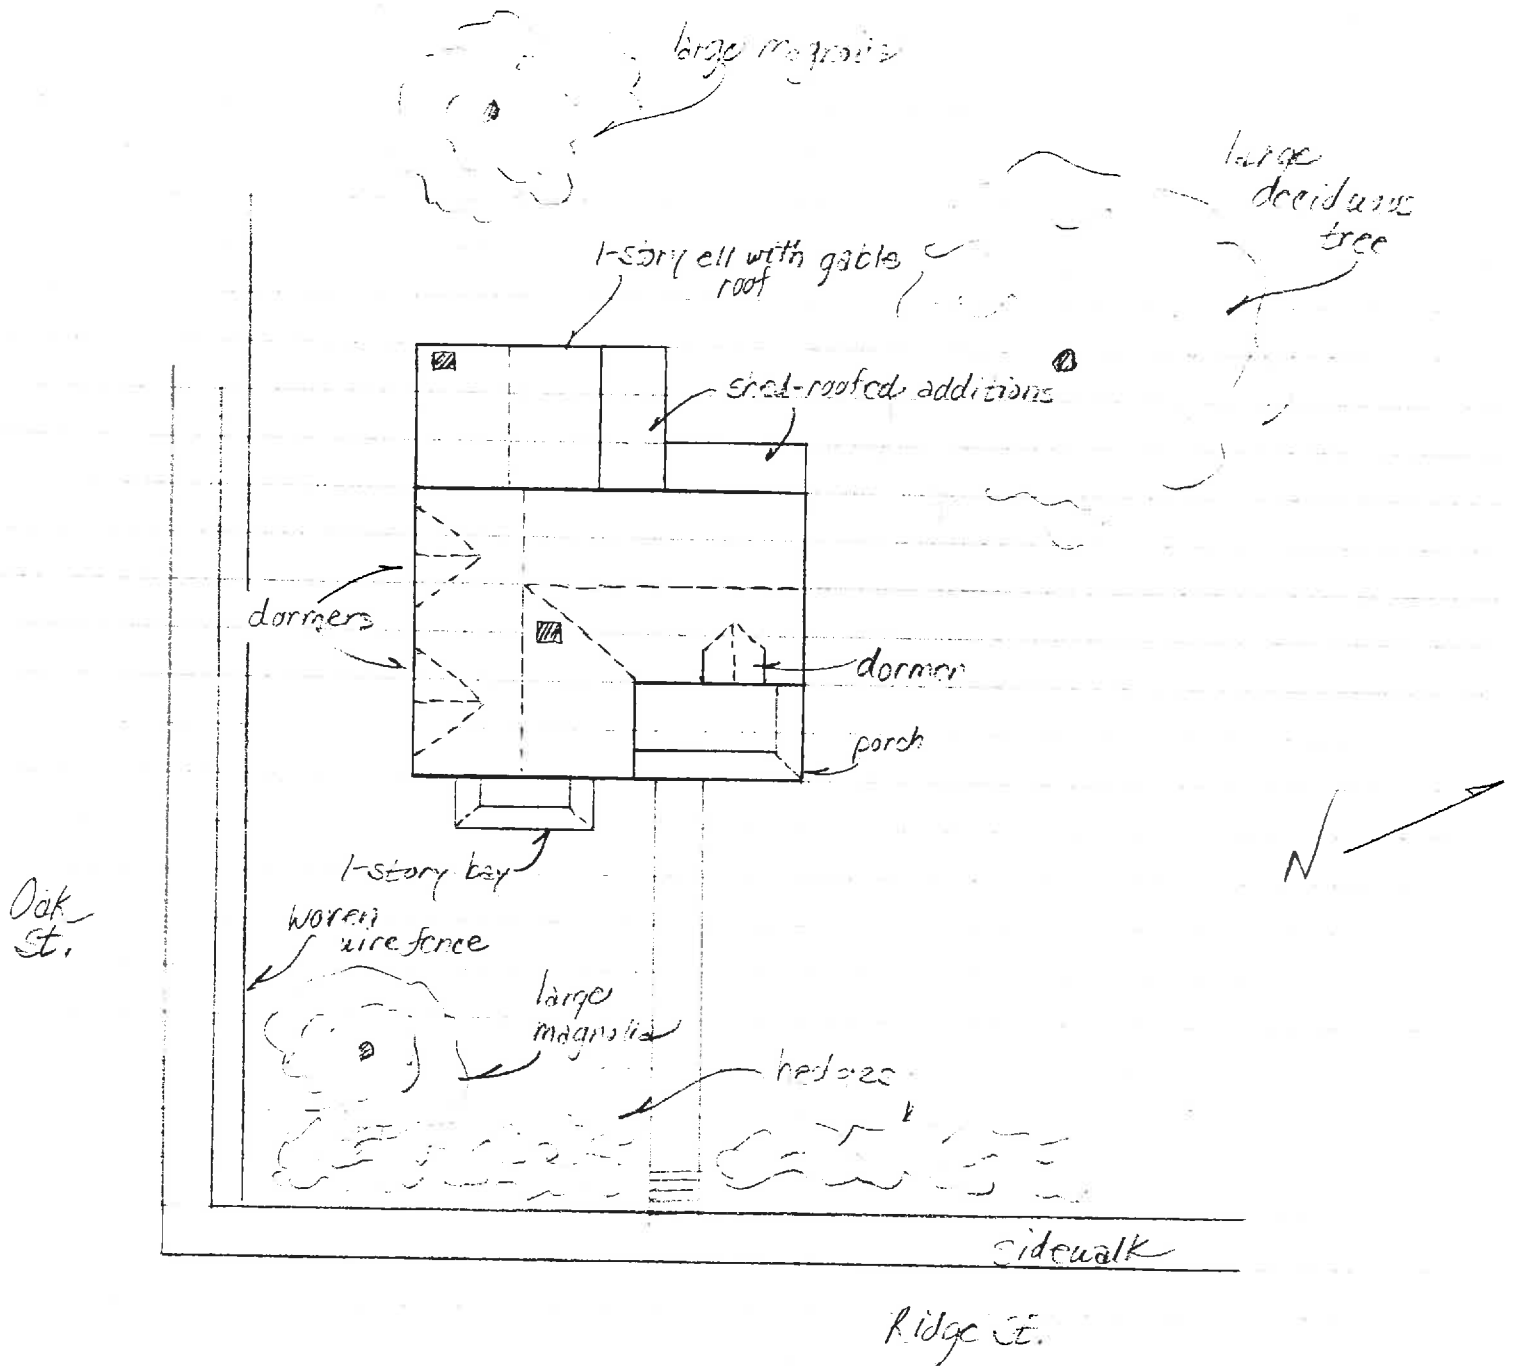 large magnolia
large
deciduous
tree
1-story ell with gable
roof
shed-roofed additions
dormers
dormer
porch
1-story bay
Oak
St.
woven
wire fence
large
magnolia
hedges
N
sidewalk
Ridge St.